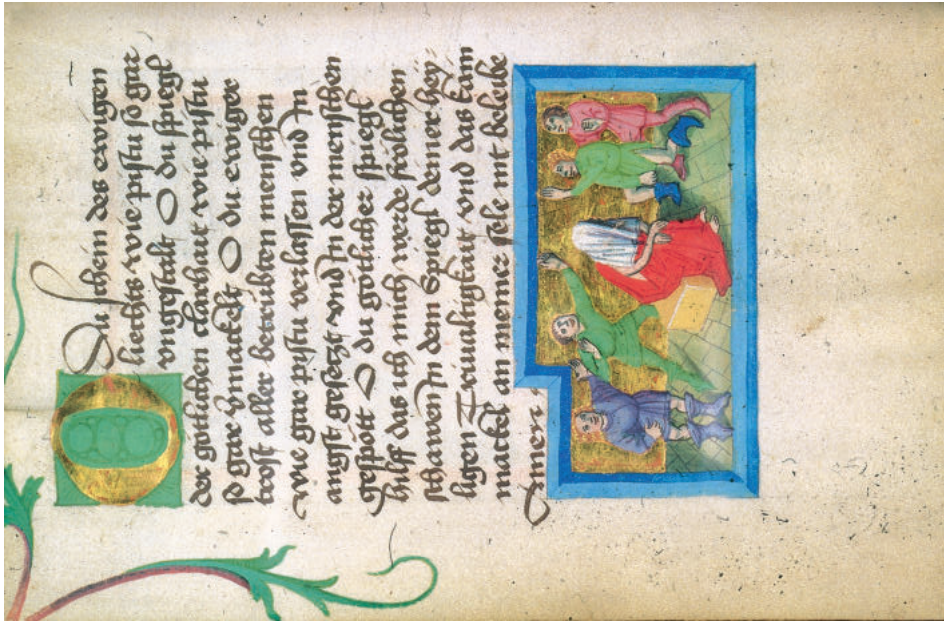 O Du schein des ewigen
liechts wie pistu so gar
vngestalt O du spiegl
der gotlichen clarhait wie pistu
so gar v̉mackelt O du ewiger
trost aller betrubten menschen
wie gar pistu verlassen vnd In
angst gesetzt vnd In der menschen
gespott O du gotlicher spiegl
hilff das ich mich werde frolichen
schawen In dem Spiegl deiner hey-
ligen Triualtigkait vnd das kain
mackel an meiner sele nit beleibe
Amen